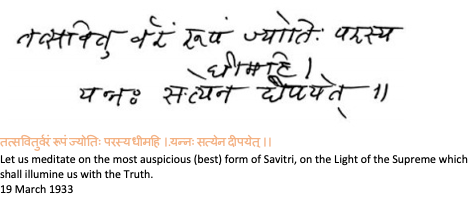 तत्सवितुर्वरं रूपं ज्योतिः परस्य
धीमहि ।
यन्नः सत्येन दीपयेत् ॥
तत्सवितुर्वरं रूपं ज्योतिः परस्य धीमहि ।यन्नः सत्येन दीपयेत् ।।
Let us meditate on the most auspicious (best) form of Savitri, on the Light of the Supreme which
shall illumine us with the Truth.
19 March 1933